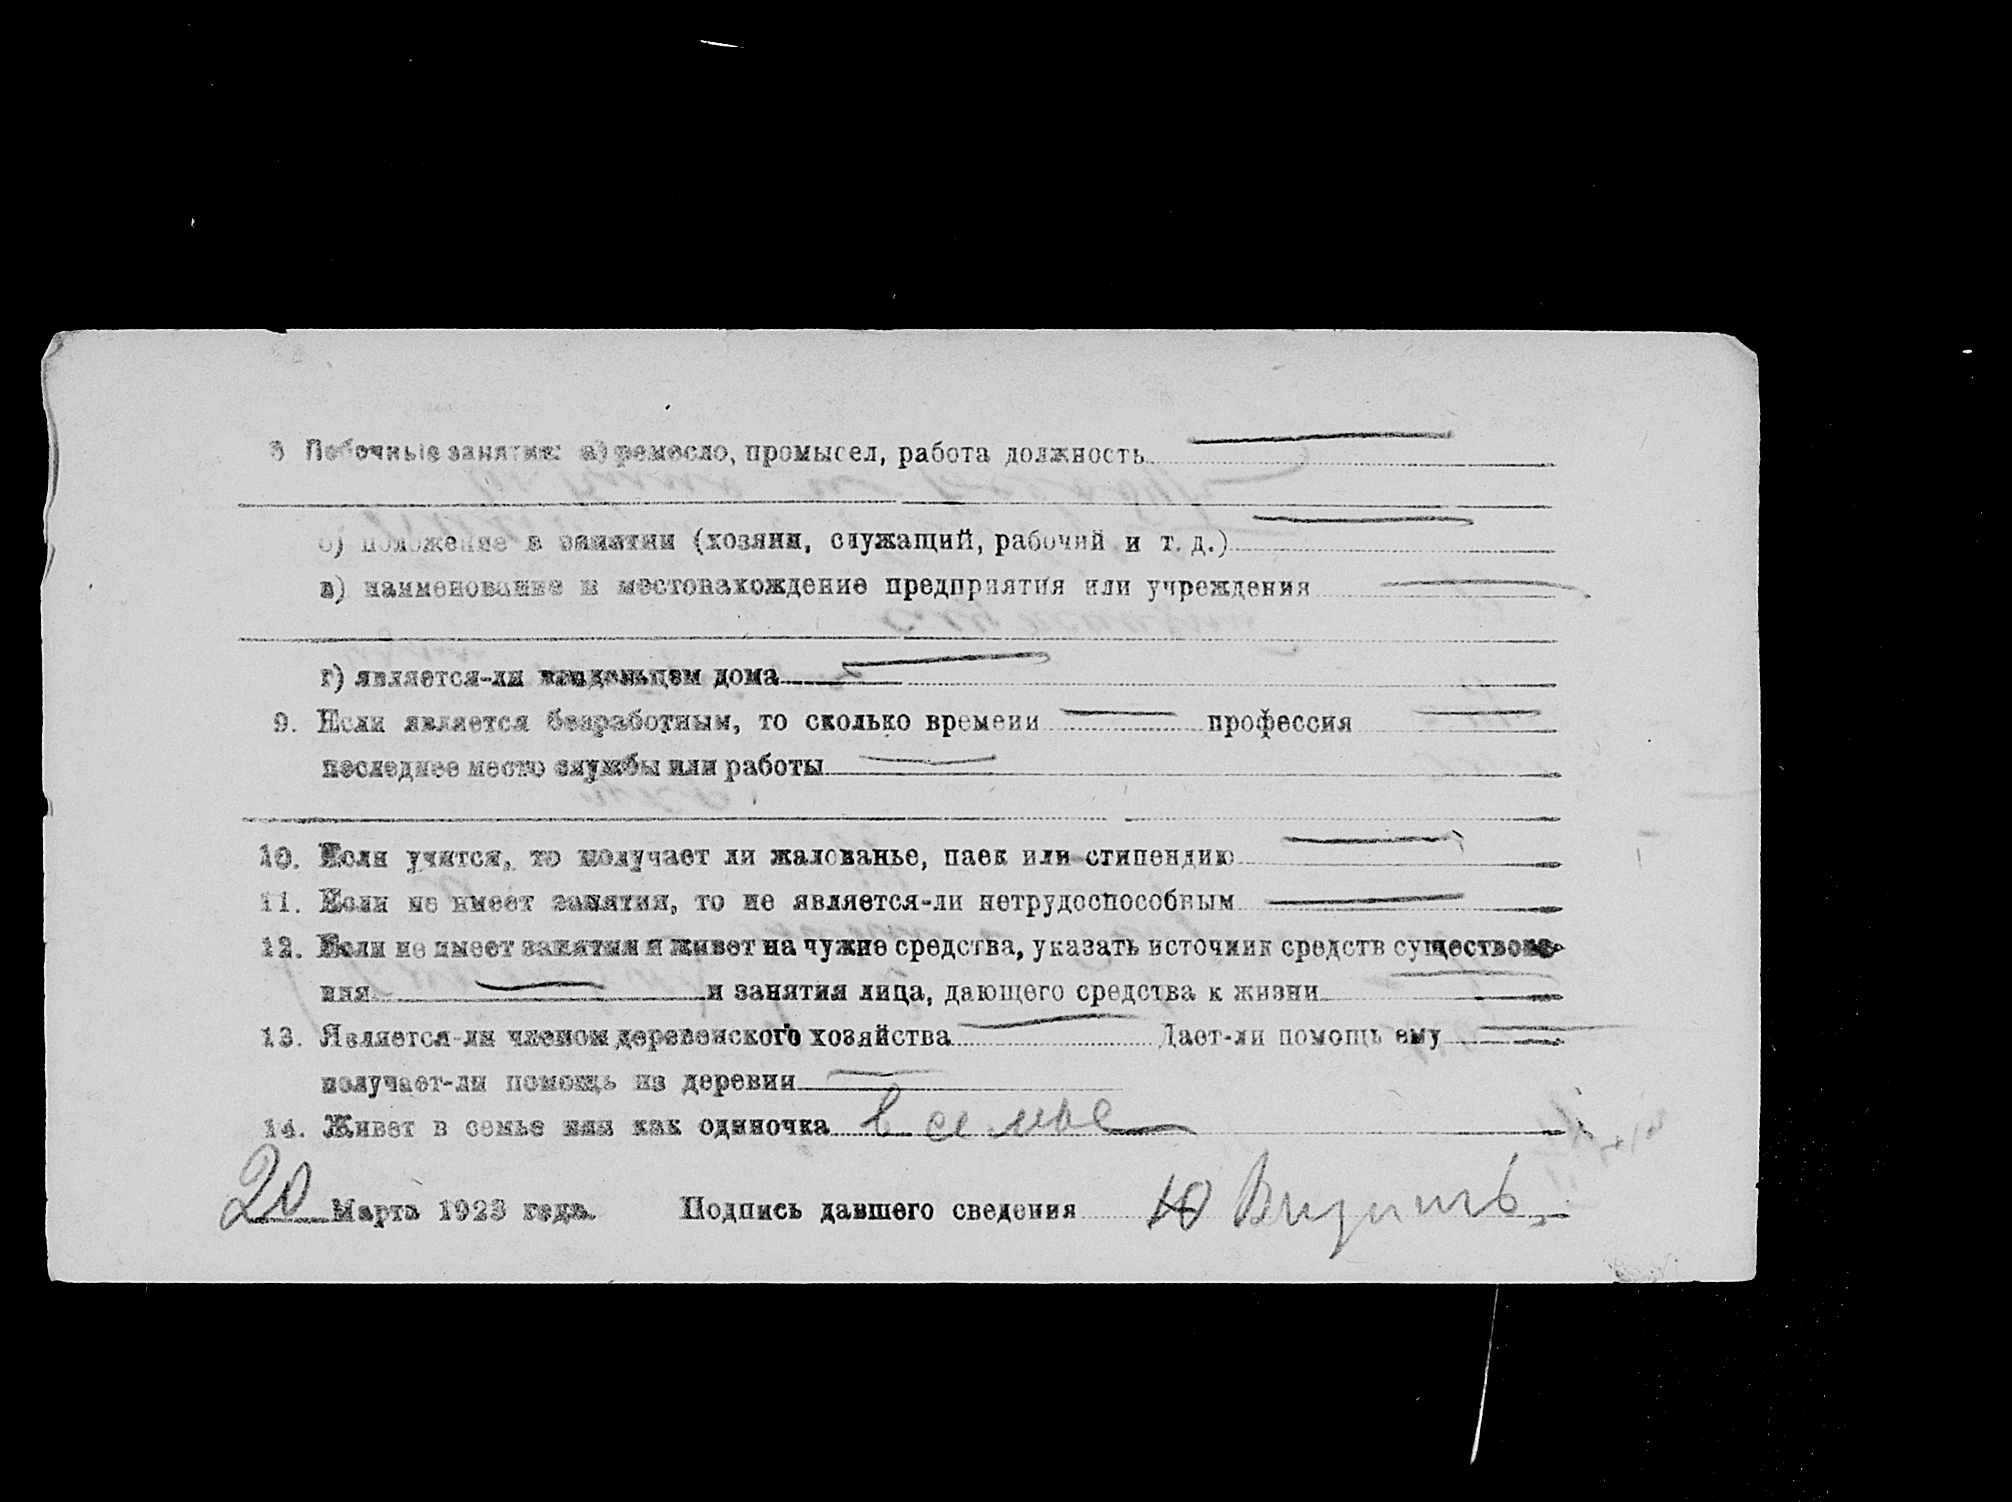 8 Побочные занятия: а) ремесло, промысел, работа должность
б) положение в занятии (хозяин, служащий, рабочий и т. д.)
в) наименование и местонахождение предприятия или учреждения
г) является-ли владельцем дома
9. Если является безработным, то сколько времени профессия
последнее место службы или работы
10. Если учится, то получает ли жалованье, паек или стипендию
11. Если не имеет занятия, то не является-ли нетрудоспособным
12. Если не имеет занятия и живет на чужие средства, указать источник средств существова-
ния и занятия лица, дающего средства к жизни
13. Является-ли членом деревенского хозяйства Дает-ли помощь ему
получает-ли помощь из деревни
14. Живет в семье или как одиночка в семье
20 Марта 1923 года. Подпись давшего сведения Ю